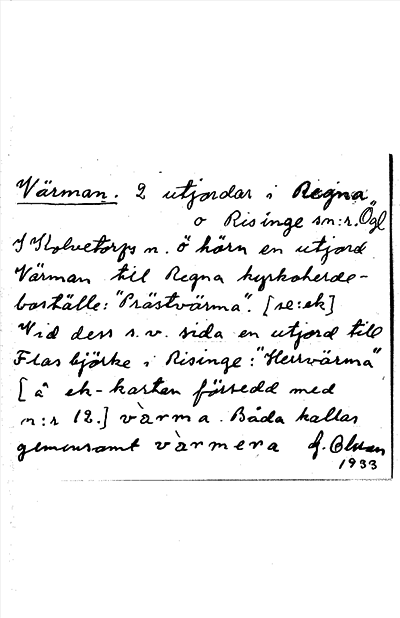 Värman. 2 utjordar i Regna
o Risinge sn:r. Ögl
I Kolvetorps n. ö hörn en utjord
Värman till Regna kyrkoherde-
boställe: "Prästvärma". [se: ek]
Vid dess s.v. sida en utjord till
Flasbjörke i Risinge: "Herrvärma"
[å ek-kartan försedd med
n:r 12.] vàrma. Båda kallas
gemensamt vàrmena
1933